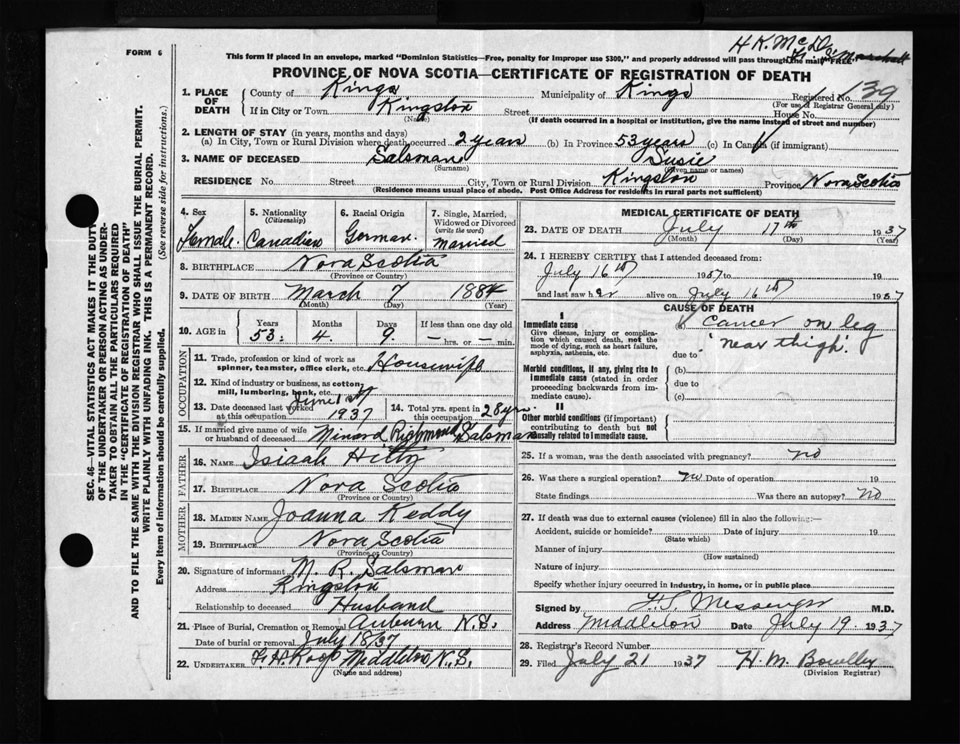 FORM 6
H K. McD.
This form if placed in an envelope, marked "Dominion Statistics—Free, penalty for improper use $300," and properly addressed will pass through the mail "FREE"
PROVINCE OF NOVA SCOTIA—CERTIFICATE OF REGISTRATION OF DEATH
1. PLACE OF DEATH County of Kings Municipality of Kings Registered No. 139
(For use of Registrar General only)
If in City or Town Kingston Street House No.
(Name) (If death occurred in a hospital or institution, give the name instead of street and number)
2. LENGTH OF STAY (in years, months and days)
(a) In City, Town or Rural Division where death occurred 2 years (b) In Province 53 years (c) In Canada (if immigrant)
3. NAME OF DECEASED Salsman Susie
(Surname) (Given name or names)
RESIDENCE No. Street City, Town or Rural Division Kingston Province Nova Scotia
(Residence means usual place of abode. Post Office Address for residents in rural parts not sufficient)
4. Sex 5. Nationality (Citizenship) 6. Racial Origin 7. Single, Married, Widowed or Divorced (write the word)
Female. Canadian German. Married
8. BIRTHPLACE Nova Scotia
(Province or Country)
9. DATE OF BIRTH March 7 1884
(Month) (Day) (Year)
10. AGE in Years Months Days If less than one day old
53. 4. 9. — hrs. or — min.
OCCUPATION
11. Trade, profession or kind of work as spinner, teamster, office clerk, etc. Housewife
12. Kind of industry or business, as cotton mill, lumbering, bank, etc.
13. Date deceased last worked at this occupation June 1st 1937 14. Total yrs. spent in this occupation 28 yrs.
15. If married give name of wife or husband of deceased Minard Richmond Salsman
FATHER
16. NAME Isiaah Hilty
17. BIRTHPLACE Nova Scotia
(Province or Country)
MOTHER
18. MAIDEN NAME Joanna Keddy
19. BIRTHPLACE Nova Scotia
(Province or Country)
20. Signature of informant M. R. Salsman
Address Kingston
Relationship to deceased Husband
21. Place of Burial, Cremation or Removal Auburn N.S.
Date of burial or removal July 18/37
22. UNDERTAKER Middleton N.S.
(Name and address)
MEDICAL CERTIFICATE OF DEATH
23. DATE OF DEATH July 17th 1937
(Month) (Day) (Year)
24. I HEREBY CERTIFY that I attended deceased from:
July 16th 1937 to 19
and last saw her alive on July 16th 1937
CAUSE OF DEATH
I
Immediate cause
Give disease, injury or complication which caused death, not the mode of dying, such as heart failure, asphyxia, asthenia, etc.
Cancer on leg
'near thigh'.
due to
Morbid conditions, if any, giving rise to immediate cause (stated in order proceeding backwards from immediate cause).
(b)
due to
(c)
II
Other morbid conditions (if important) contributing to death but not causally related to immediate cause.
25. If a woman, was the death associated with pregnancy? no
26. Was there a surgical operation? no Date of operation 19
State findings Was there an autopsy? no
27. If death was due to external causes (violence) fill in also the following:—
Accident, suicide or homicide? Date of injury 19
(State which)
Manner of injury
(How sustained)
Nature of injury
Specify whether injury occurred in industry, in home, or in public place
Signed by Messenger M.D.
Address Middleton Date July 19 1937
28. Registrar's Record Number
29. Filed July 21 1937 H. M.
(Division Registrar)
SEC. 46—VITAL STATISTICS ACT MAKES IT THE DUTY
OF THE UNDERTAKER OR PERSON ACTING AS UNDER-
TAKER TO OBTAIN ALL THE PARTICULARS REQUIRED
IN THE "CERTIFICATE OF REGISTRATION OF DEATH"
AND TO FILE THE SAME WITH THE DIVISION REGISTRAR WHO SHALL ISSUE THE BURIAL PERMIT.
WRITE PLAINLY WITH UNFADING INK. THIS IS A PERMANENT RECORD.
Every item of information should be carefully supplied. (See reverse side for instructions.)